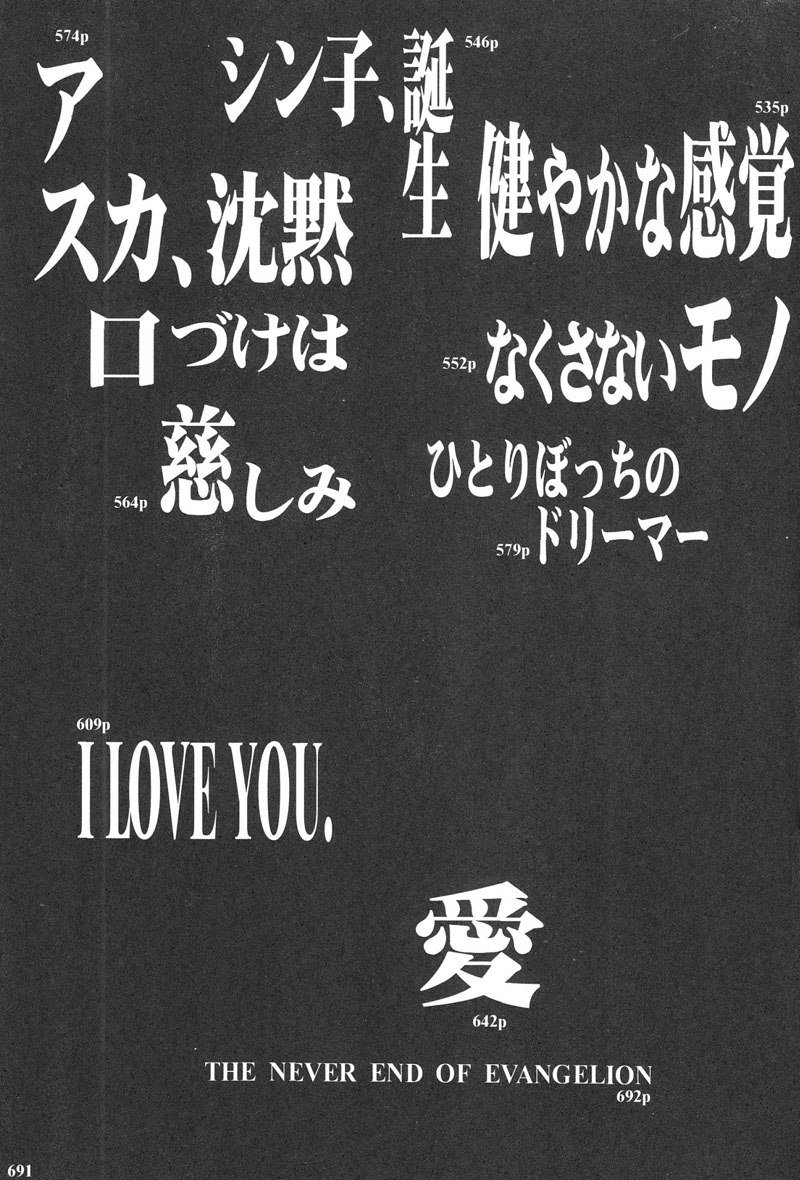 574p
ア
スカ、沈黙
シン子、誕生
546p
535p
健やかな感覚
口づけは
慈しみ
564p
552p
なくさないモノ
ひとりぼっちの
ドリーマー
579p
609p
I LOVE YOU.
愛
642p
THE NEVER END OF EVANGELION
692p
691